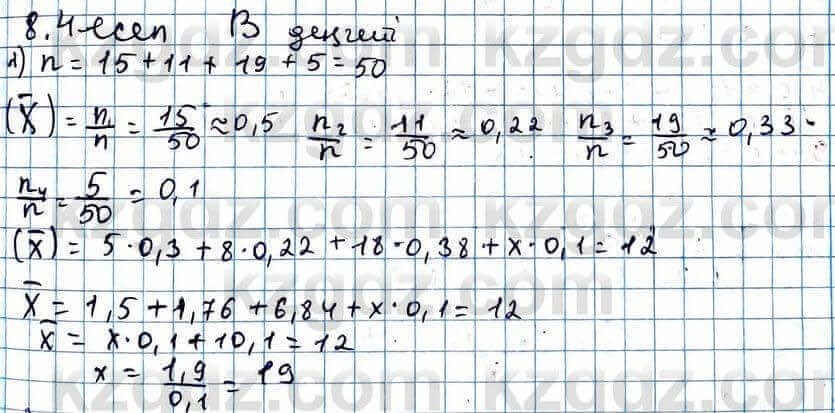 8.4 есеп В деңгей
1) n = 15 + 11 + 19 + 5 = 50
(x̄) = n₁/n = 15/50 ≈ 0,5 n₂/n = 11/50 ≈ 0,22 n₃/n = 19/50 ≈ 0,33
n₄/n = 5/50 = 0,1
(x̄) = 5·0,3 + 8·0,22 + 18·0,38 + x·0,1 = 12
x̄ = 1,5 + 1,76 + 6,84 + x·0,1 = 12
x̄ = x·0,1 + 10,1 = 12
x = 1,9/0,1 = 19